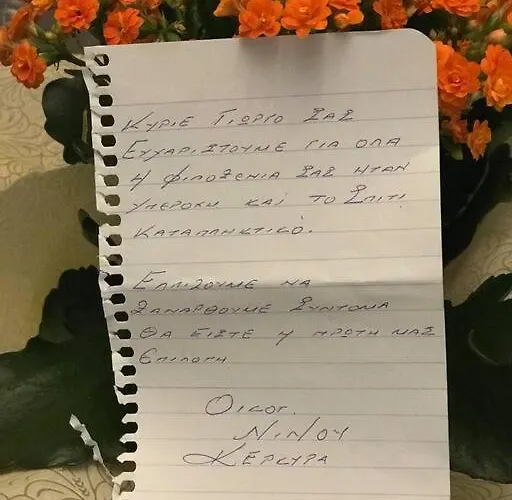 ΚΥΡΙΕ ΓΙΩΡΓΟ ΣΑΣ
ΕΥΧΑΡΙΣΤΟΥΜΕ ΓΙΑ ΟΛΑ
Η ΦΙΛΟΞΕΝΙΑ ΣΑΣ ΗΤΑΝ
ΥΠΕΡΟΧΗ ΚΑΙ ΤΟ ΣΠΙΤΙ
ΚΑΤΑΠΛΗΚΤΙΚΟ.
ΕΛΠΙΖΟΥΜΕ ΝΑ
ΞΑΝΑΡΘΟΥΜΕ ΣΥΝΤΟΜΑ
ΘΑ ΕΙΣΤΕ Η ΠΡΩΤΗ ΜΑΣ
ΕΠΙΛΟΓΗ
ΟΙΚΟΓ.
ΝΙΝΟΥ
ΚΕΡΚΥΡΑ